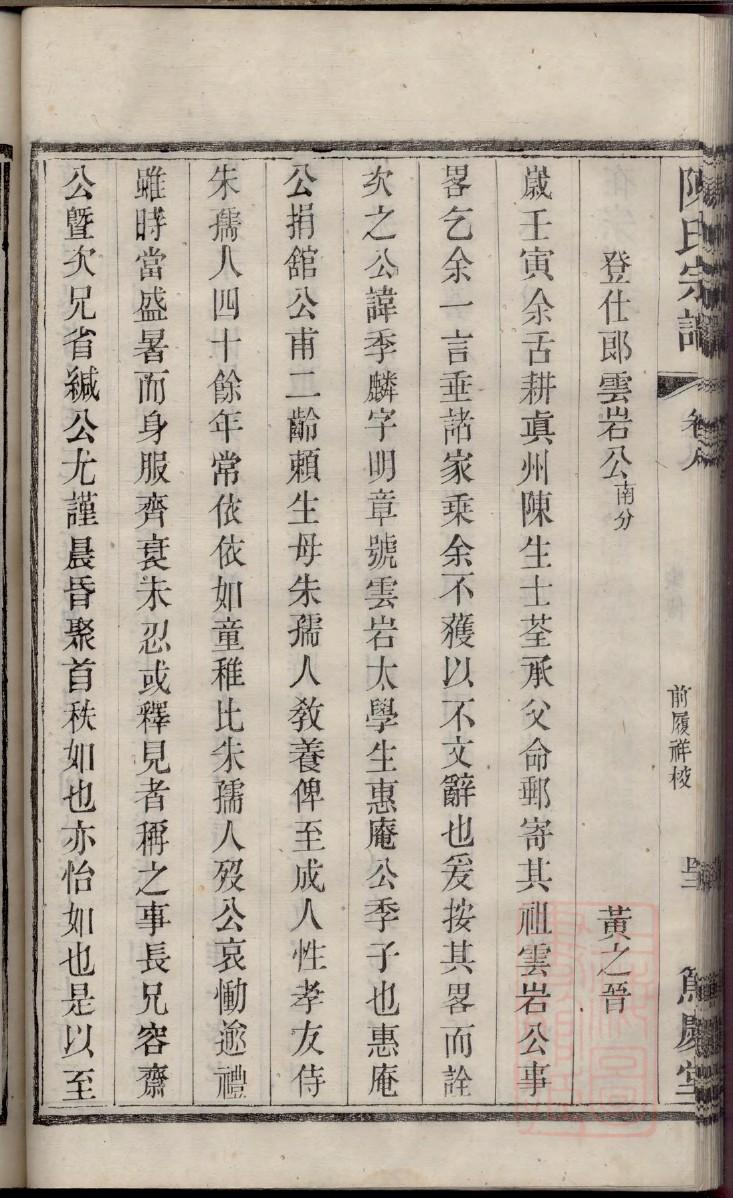 陳氏宗譜
卷八
前履祥校
篤慶堂
登仕郎雲岩公南分
黃之晉
歲壬寅余舌耕眞州陳生士荃承父命郵寄其祖雲岩公事
畧乞余一言垂諸家乘余不獲以不文辭也爰按其畧而詮
次之公諱季麟字明章號雲岩太學生惠庵公季子也惠庵
公捐舘公甫二齡頼生母朱孺人敎養俾至成人性孝友侍
朱孺人四十餘年常依依如童稚比朱孺人歿公哀慟遊禮
雖時當盛暑而身服齊衰未忍或釋見者稱之事長兄容齋
公曁次兄省緘公尤謹晨昏聚首秩如也亦怡如也是以至